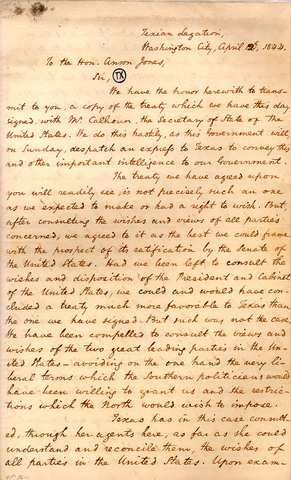 Texian Legation,
Washington City, April 12th, 1844.
To the Hon. Anson Jones,
Sir,
TX
We have the honor herewith to trans-
mit to you, a copy of the treaty which we have this day
signed, with Mr. Calhoun, the Secretary of State of the
United States. We do this hastily, as this Government will
on Sunday, despatch an express to Texas to convey this
and other important intelligence to our Government.
The treaty we have agreed upon
you will readily see, is not precisely such an one
as we expected to make or had a right to wish. But
after consulting the wishes and views of all parties
concerned, we agreed to it as the best we could frame
with the prospect of its ratification by the Senate of
the United States. Had we been left to consult the
wishes and disposition of the President and Cabinet
of the United States, we could and would have con-
cluded a treaty much more favorable to Texas than
the one we have signed. But such was not the case.
We have been compelled to consult the views and
wishes of the two great leading parties in the Uni-
ted States – avoiding on the one hand the very li-
beral terms which the Southern politicians would
have been willing to grant us and the restric-
tions which the North would wish to impose.
Texas has in this case consult-
ed, through her agents here, as far as she could
understand and reconcile them, the wishes of
all parties in the United States. Upon exam-